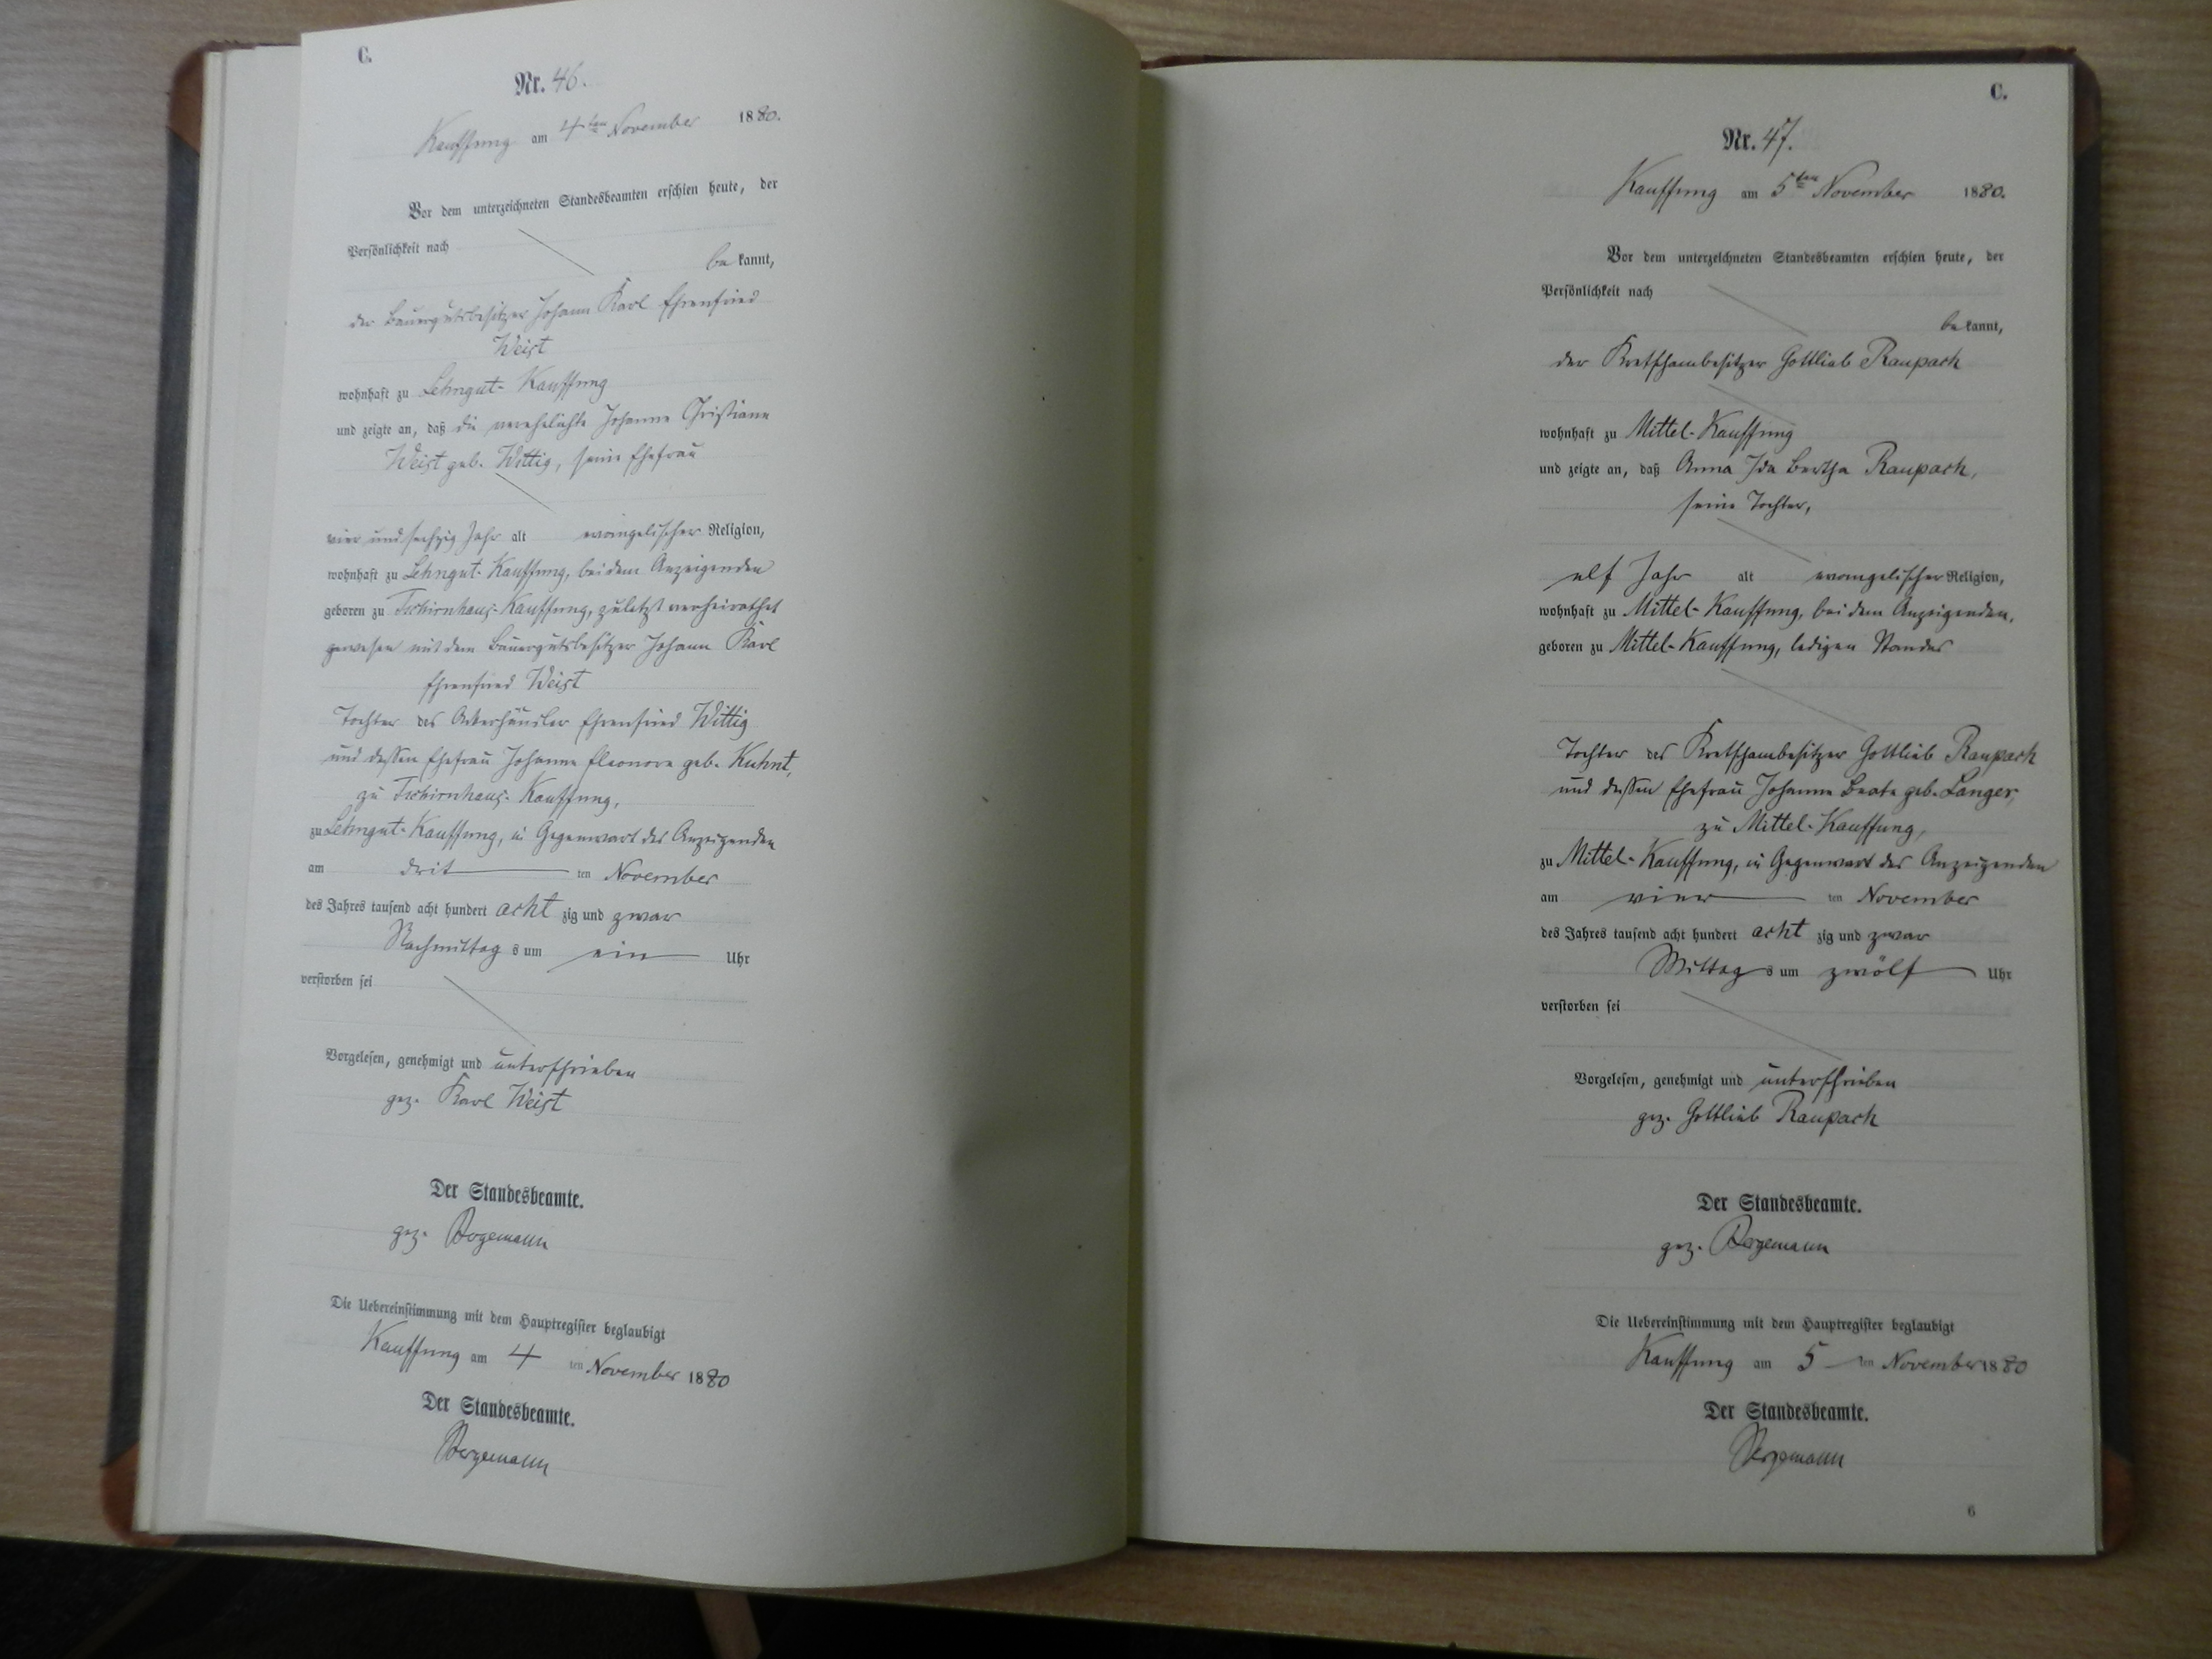 C.
Nr. 46.
Kauffung am 4ten November 1880.
Vor dem unterzeichneten Standesbeamten erschien heute, der
Persönlichkeit nach
be kannt,
der Bauergutsbesitzer Johann Karl Ehrenfried
Weist
wohnhaft zu Lehngut-Kauffung
und zeigte an, daß die verehelichte Johanne Christiane
Weist geb. Wittig, seine Ehefrau
vier und sechzig Jahr alt evangelischer Religion,
wohnhaft zu Lehngut-Kauffung, bei dem Anzeigenden
geboren zu Tschirnhaus-Kauffung, zuletzt verheirathet
gewesen mit dem Bauergutsbesitzer Johann Karl
Ehrenfried Weist
Tochter des Ehrenfried Wittig
und dessen Ehefrau Johanne Eleonore geb. Kuhnt,
zu Tschirnhaus-Kauffung,
zu Lehngut-Kauffung, in Gegenwart des Anzeigenden
am drit ten November
des Jahres tausend acht hundert acht zig und zwar
Nachmittag s um ein Uhr
verstorben sei
Vorgelesen, genehmigt und unterschrieben
gez. Karl Weist
Der Standesbeamte.
gez. Bergemann
Die Uebereinstimmung mit dem Hauptregister beglaubigt
Kauffung am 4 ten November 1880
Der Standesbeamte.
Bergemann
C.
Nr. 47.
Kauffung am 5ten November 1880.
Vor dem unterzeichneten Standesbeamten erschien heute, der
Persönlichkeit nach
be kannt,
der Kretschambesitzer Gottlieb Raupach
wohnhaft zu Mittel-Kauffung
und zeigte an, daß Anna Ida Bertha Raupach,
seine Tochter,
elf Jahr alt evangelischer Religion,
wohnhaft zu Mittel-Kauffung, bei dem Anzeigenden,
geboren zu Mittel-Kauffung, ledigen Standes
Tochter des Kretschambesitzer Gottlieb Raupach
und dessen Ehefrau Johanne Beate geb. Langer,
zu Mittel-Kauffung,
zu Mittel-Kauffung, in Gegenwart des Anzeigenden
am vier ten November
des Jahres tausend acht hundert acht zig und zwar
Mittag s um zwölf Uhr
verstorben sei
Vorgelesen, genehmigt und unterschrieben
gez. Gottlieb Raupach
Der Standesbeamte.
gez. Bergemann
Die Uebereinstimmung mit dem Hauptregister beglaubigt
Kauffung am 5 ten November 1880
Der Standesbeamte.
Bergemann
6